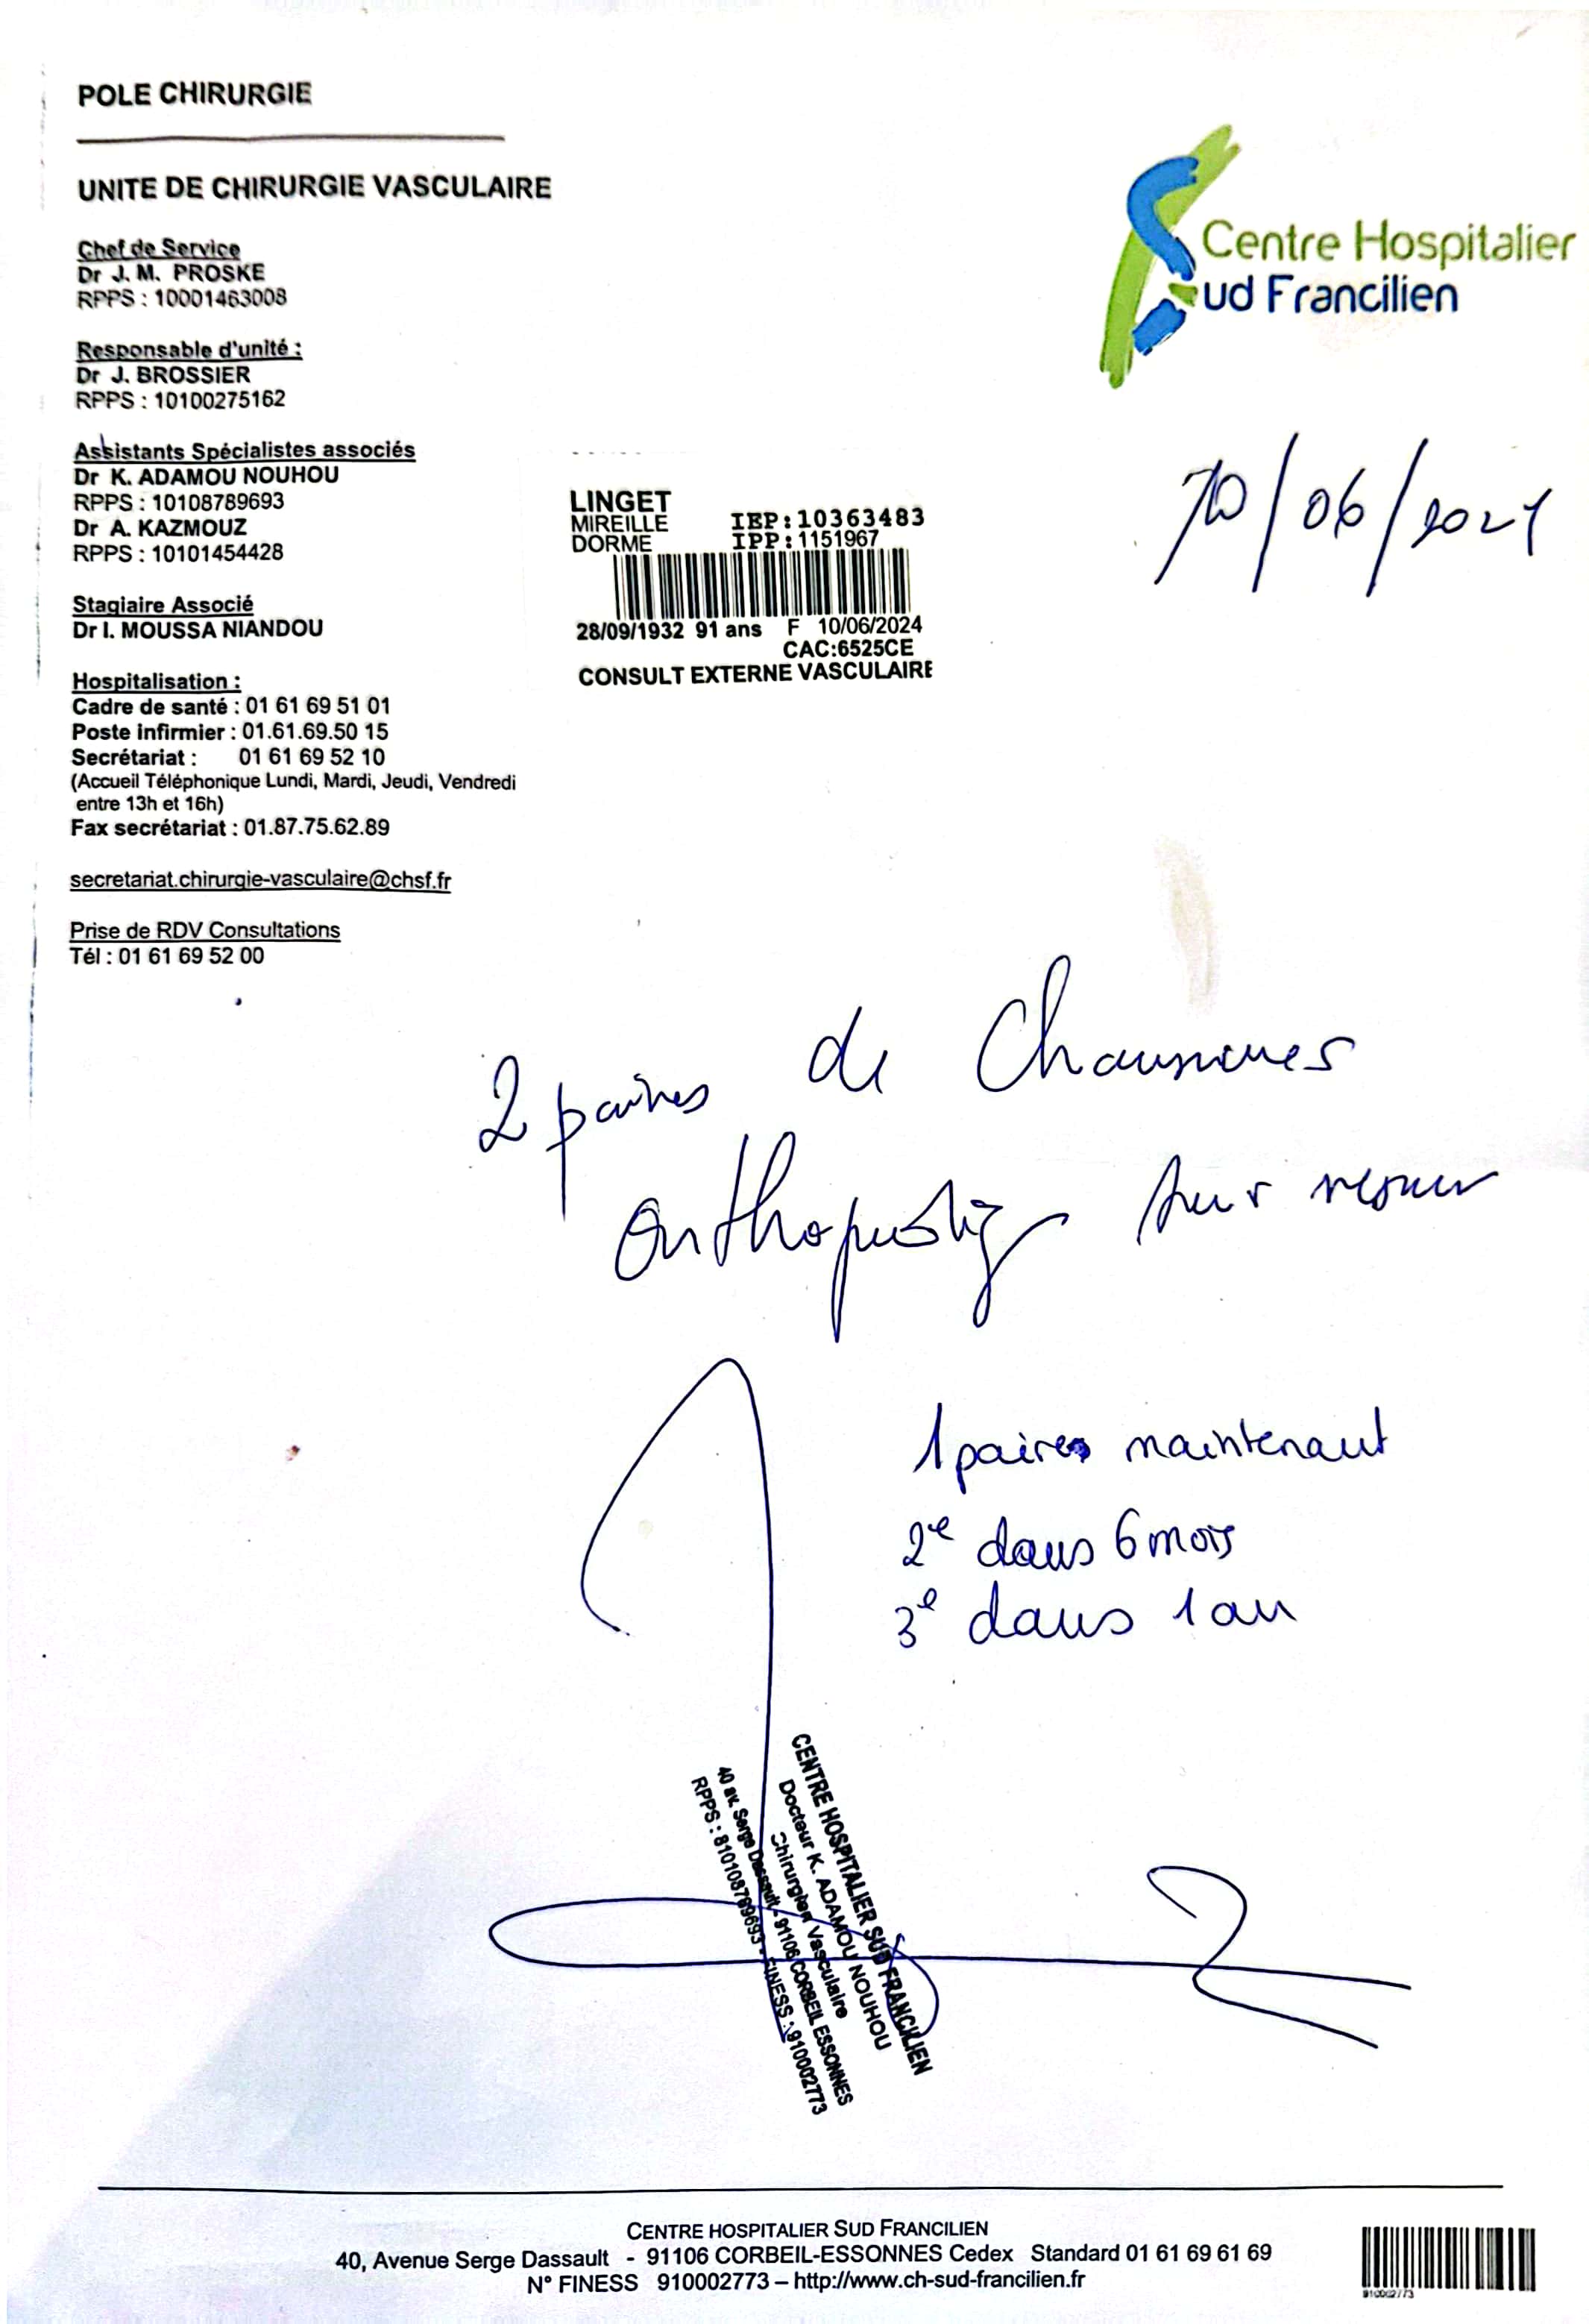 POLE CHIRURGIE
UNITE DE CHIRURGIE VASCULAIRE
Chef de Service
Dr J. M. PROSKE
RPPS : 10001463008
Responsable d'unité :
Dr J. BROSSIER
RPPS : 10100275162
Assistants Spécialistes associés
Dr K. ADAMOU NOUHOU
RPPS : 10108789693
Dr A. KAZMOUZ
RPPS : 10101454428
Stagiaire Associé
Dr I. MOUSSA NIANDOU
Hospitalisation :
Cadre de santé : 01 61 69 51 01
Poste infirmier : 01.61.69.50 15
Secrétariat : 01 61 69 52 10
(Accueil Téléphonique Lundi, Mardi, Jeudi, Vendredi
entre 13h et 16h)
Fax secrétariat : 01.87.75.62.89
secretariat.chirurgie-vasculaire@chsf.fr
Prise de RDV Consultations
Tél : 01 61 69 52 00
Centre Hospitalier
Sud Francilien
LINGET
MIREILLE IEP:10363483
DORME IPP:1151967
28/09/1932 91 ans F 10/06/2024
CAC:6525CE
CONSULT EXTERNE VASCULAIRE
10/06/2024
2 paires de Chaussures
orthopédiq sur mesure
1 paires maintenant
2e dans 6 mois
3e dans 1 an
CENTRE HOSPITALIER SUD FRANCILIEN
Docteur K. ADAMOU NOUHOU
Chirurgien Vasculaire
40 av. Serge Dassault - 91106 CORBEIL ESSONNES
RPPS : 810108789693 - FINESS : 910002773
CENTRE HOSPITALIER SUD FRANCILIEN
40, Avenue Serge Dassault - 91106 CORBEIL-ESSONNES Cedex Standard 01 61 69 61 69
N° FINESS 910002773 – http://www.ch-sud-francilien.fr
910002773